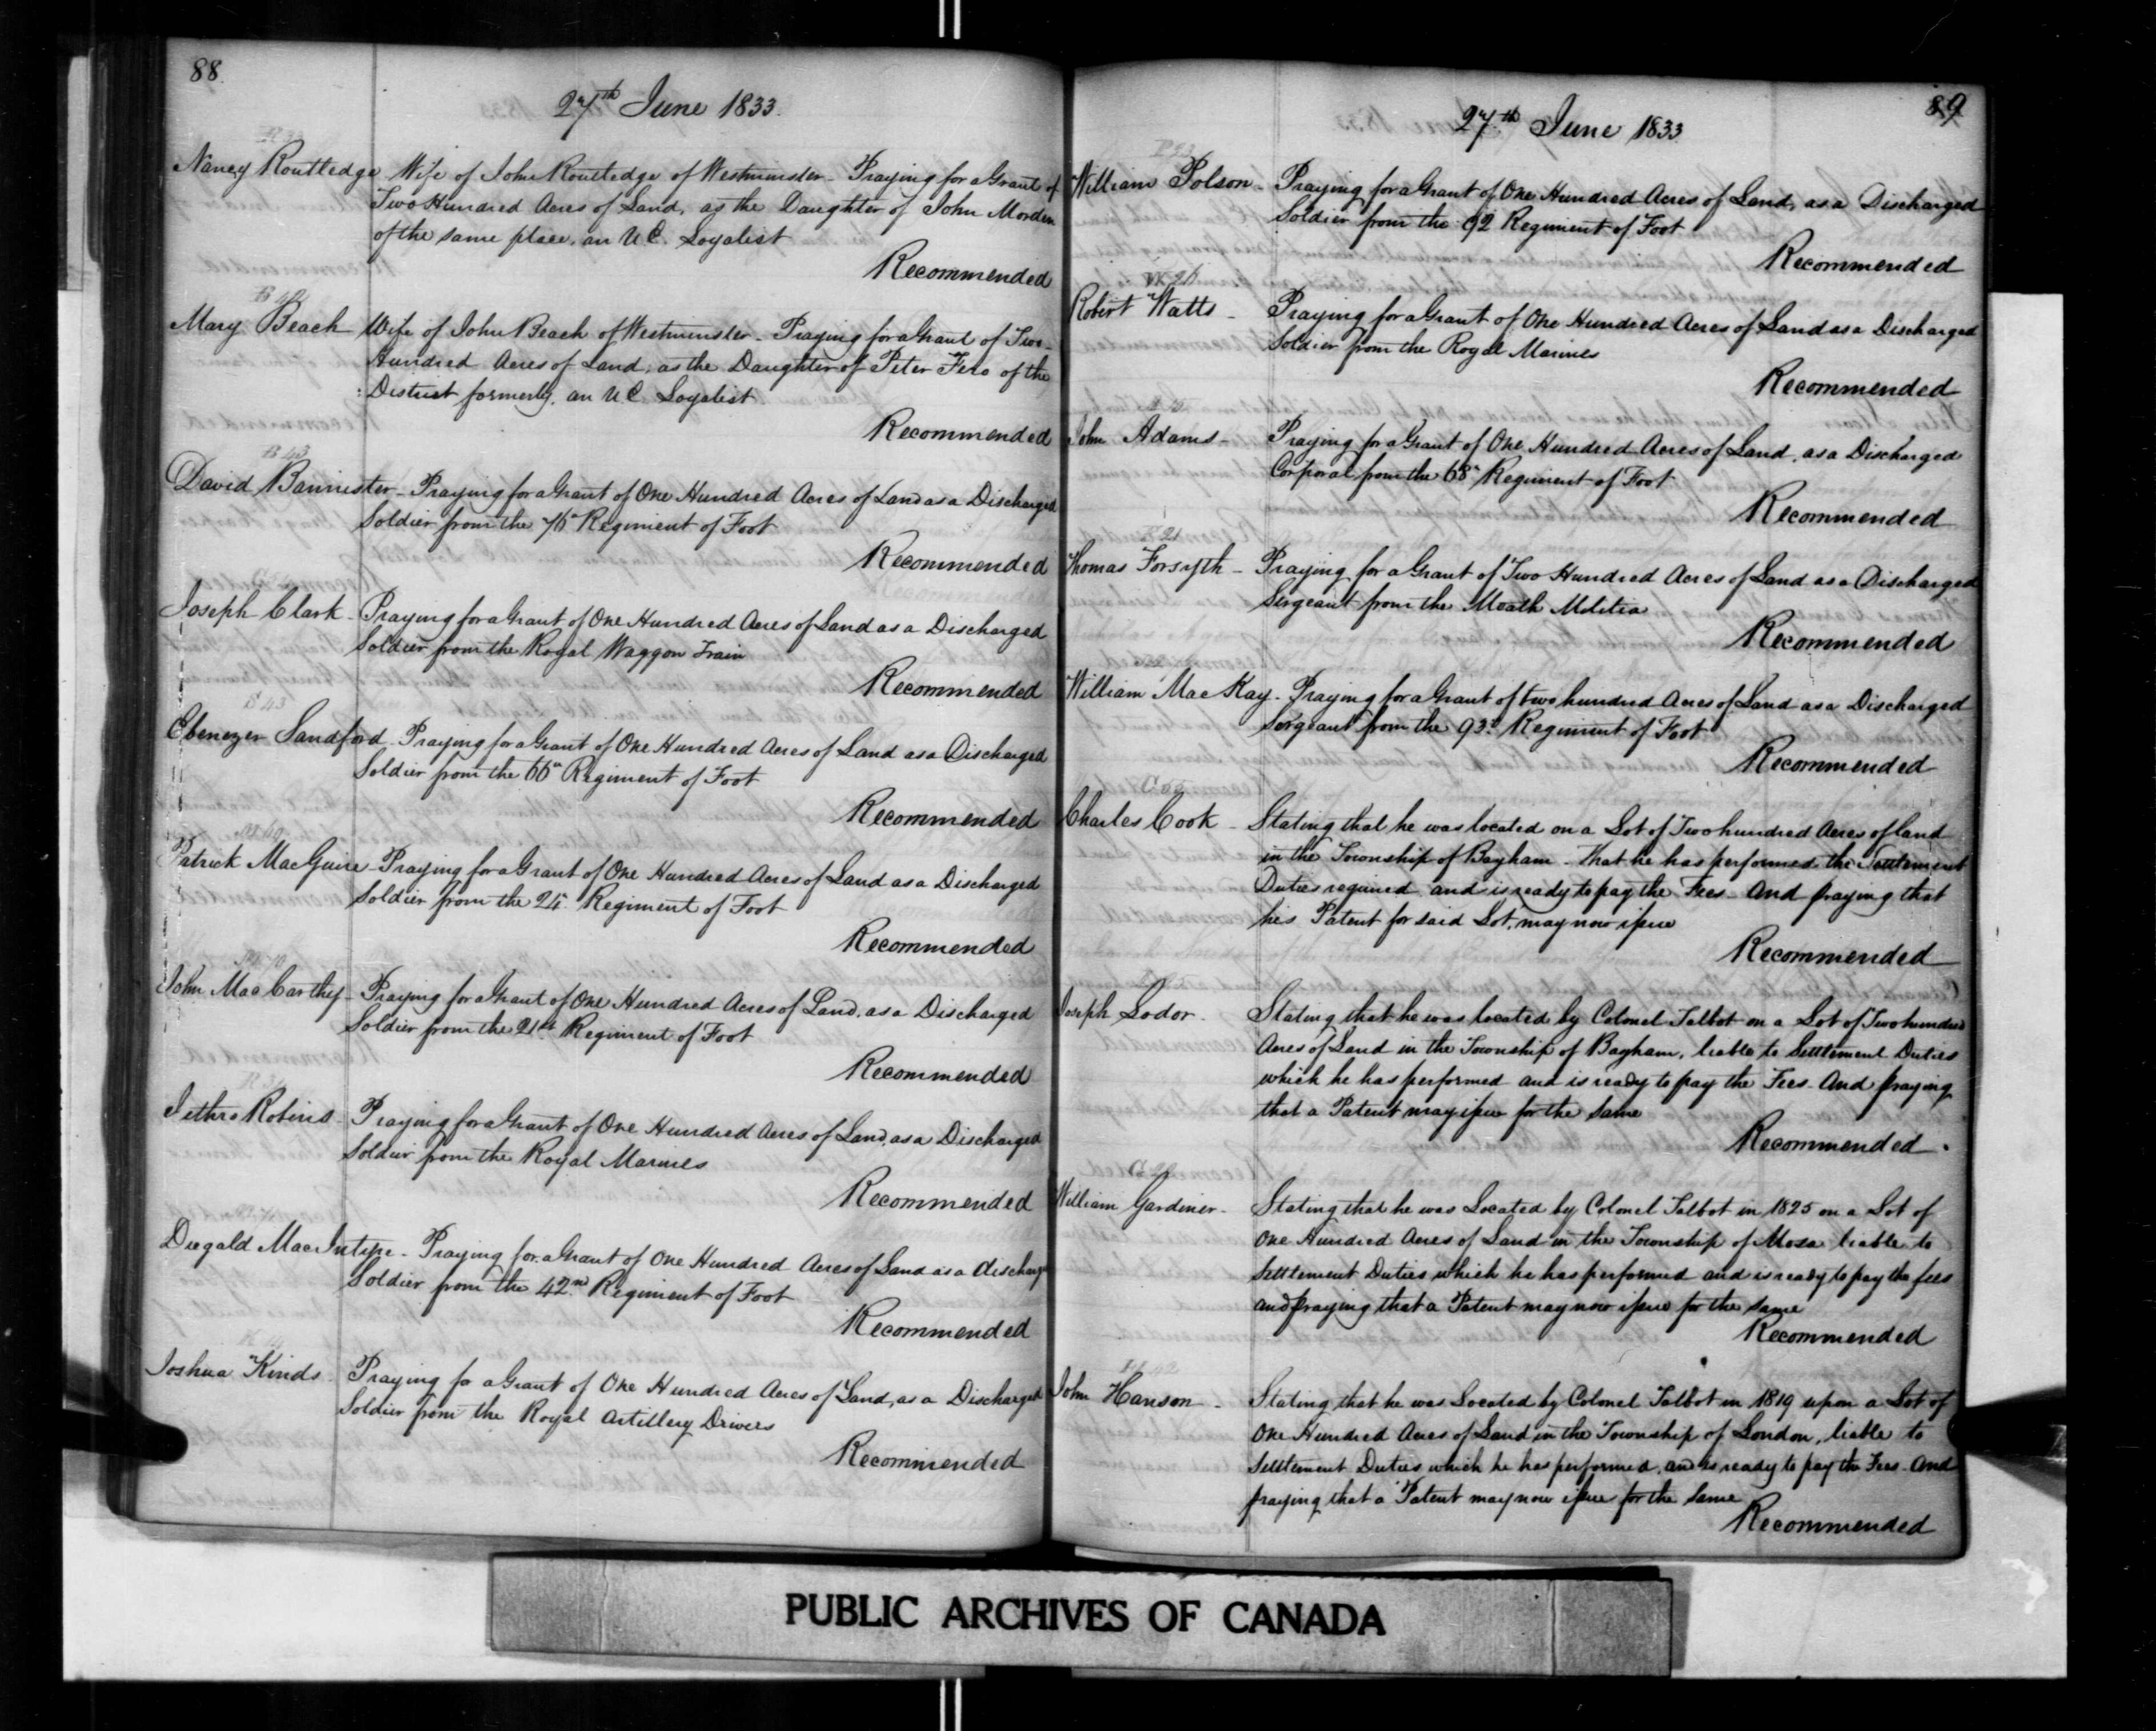 88
27th June 1833.
Nancy Routledge Wife of John Routledge of Westminster - Praying for a Grant of
Two Hundred Acres of Land, as the Daughter of John Morden
of the same place, an U.E. Loyalist
Recommended
Mary Beach Wife of John Beach of Westminster - Praying for a Grant of Two-
Hundred Acres of Land, as the Daughter of Peter Fero of the
District formerly, an U.E. Loyalist
Recommended
B 43
David Bannister - Praying for a Grant of One Hundred Acres of Land as a Discharged
Soldier from the 76th Regiment of Foot
Recommended
Joseph Clark - Praying for a Grant of One Hundred Acres of Land as a Discharged
Soldier from the Royal Waggon Train
Recommended
S 43
Ebenezer Sandford - Praying for a Grant of One Hundred Acres of Land as a Discharged
Soldier from the 66th Regiment of Foot
Recommended
Patrick MacGuire - Praying for a Grant of One Hundred Acres of Land as a Discharged
Soldier from the Regiment of Foot
Recommended
John MacCarthy - Praying for a Grant of One Hundred Acres of Land, as a Discharged
Soldier from the 21st Regiment of Foot
Recommended
Jethro Robins - Praying for a Grant of One Hundred Acres of Land, as a Discharged
Soldier from the Royal Marines
Recommended
Dugald MacIntyre - Praying for a Grant of One Hundred Acres of Land as a discharge
Soldier from the 42nd Regiment of Foot
Recommended
Joshua Kinds - Praying for a Grant of One Hundred Acres of Land, as a Discharged
Soldier from the Royal Artillery Drivers
Recommended
89
27th June 1833
William Polson - Praying for a Grant of One Hundred Acres of Land, as a Discharged
Soldier from the 92 Regiment of Foot
Recommended
Robert Watts - Praying for a Grant of One Hundred Acres of Land as a Discharged
Soldier from the Royal Marines
Recommended
John Adams - Praying for a Grant of One Hundred Acres of Land, as a Discharged
Corporal from the 68th Regiment of Foot
Recommended
F 21
Thomas Forsyth - Praying for a Grant of Two Hundred Acres of Land as a Discharged
Sergeant from the Meath Militia
Recommended
William MacKay - Praying for a Grant of two hundred Acres of Land as a Discharged
Sergeant from the 93d Regiment of Foot
Recommended
Charles Cook - Stating that he was located on a Lot of Two hundred Acres of land
in the Township of Bayham - That he has performed the Settlement
Duties required and is ready to pay the Fees - And praying that
his Patent for said Lot, may now issue
Recommended
Joseph Lodor - Stating that he was located by Colonel Talbot on a Lot of Two hundred
Acres of Land in the Township of Bayham, liable to Settlement Duties
which he has performed and is ready to pay the Fees - And praying
that a Patent may issue for the same
Recommended
William Gardiner - Stating that he was Located by Colonel Talbot in 1825 on a Lot of
One Hundred Acres of Land in the Township of Mosa liable to
Settlement Duties which he has performed and is ready to pay the fees
and praying that a Patent may now issue for the same
Recommended
John Hanson - Stating that he was Located by Colonel Talbot in 1819 upon a Lot of
One Hundred Acres of Land in the Township of London, liable to
Settlement Duties which he has performed, and is ready to pay the Fees - And
praying that a Patent may now issue for the same
Recommended
PUBLIC ARCHIVES OF CANADA